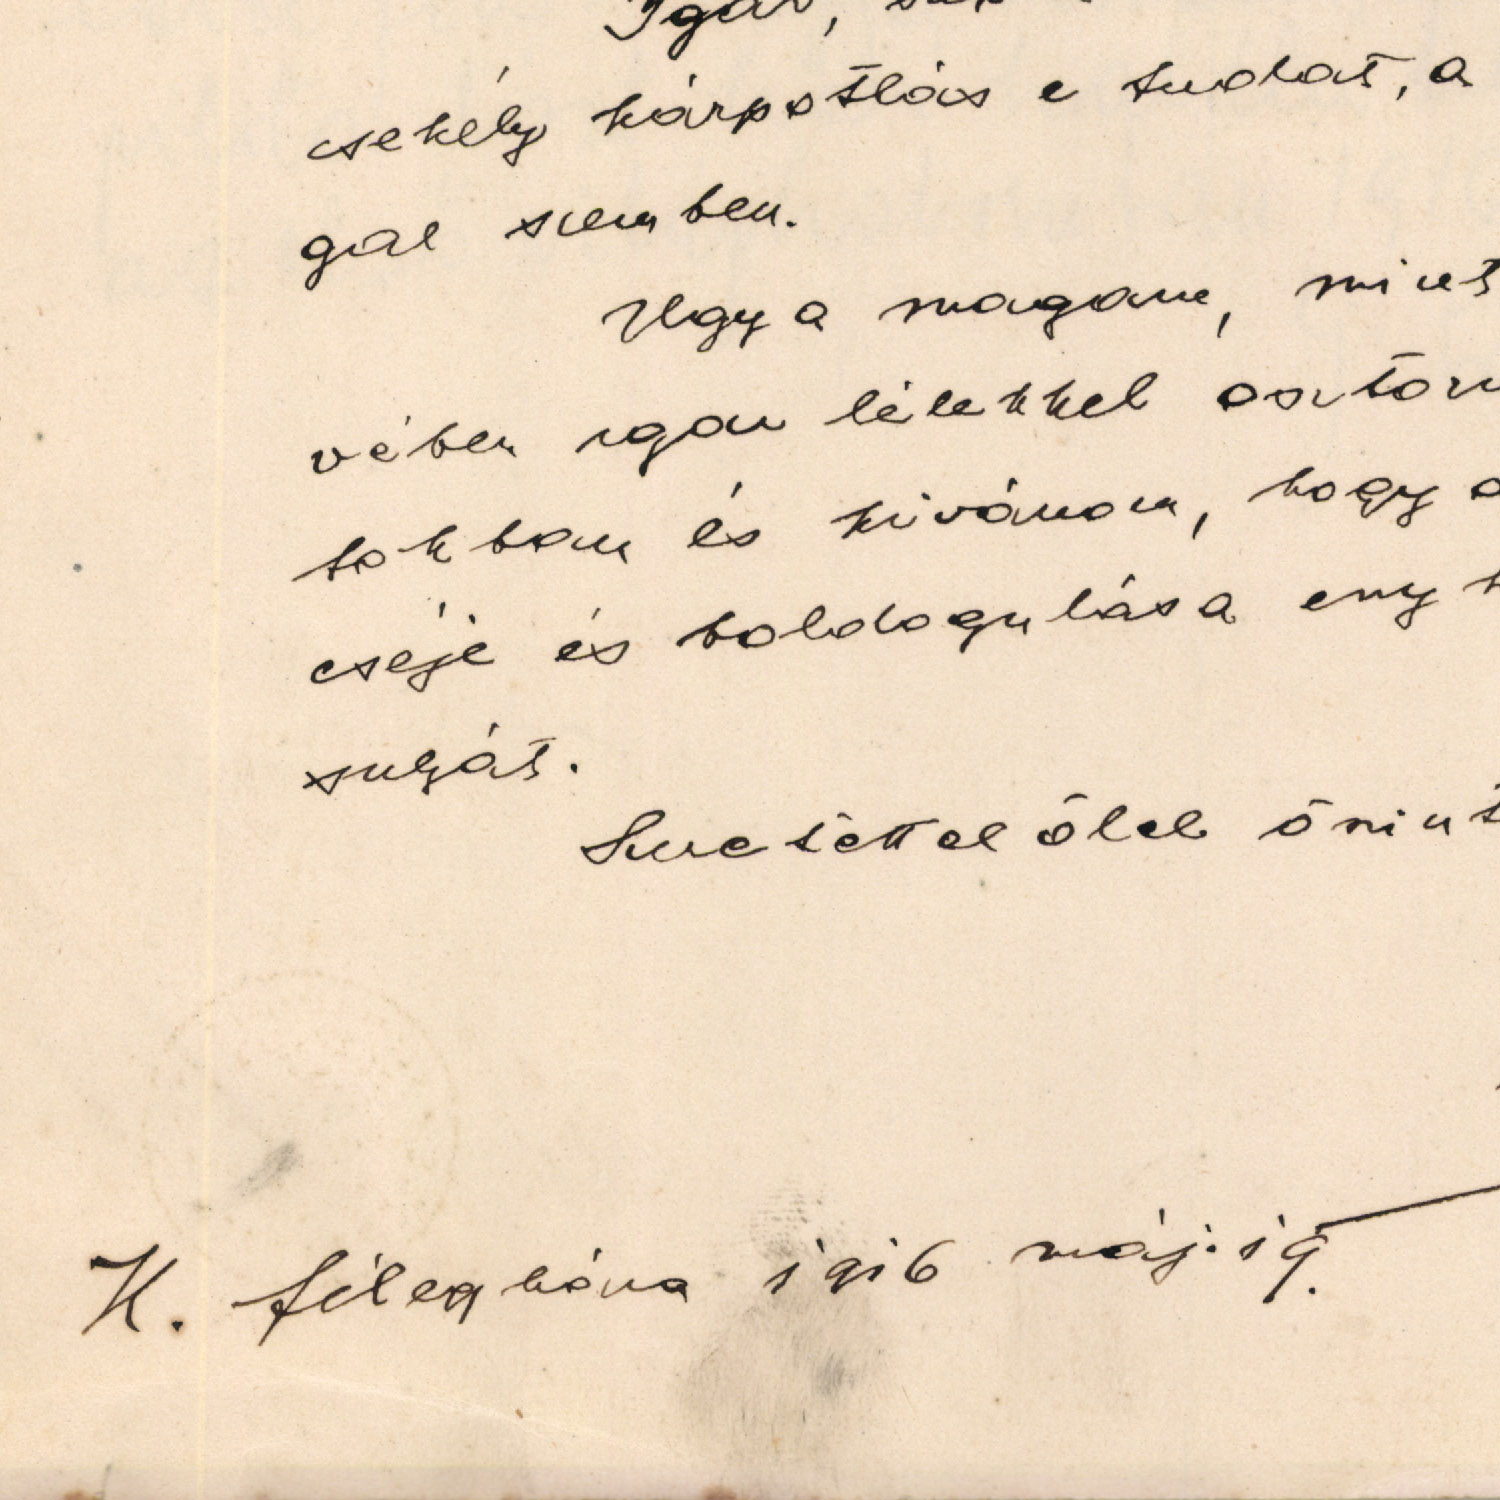 Igaz,
csekély kárpótlás e tudat, a
gal szemben.
Ugy a magam, mint
vében igaz lélekkel osztom
tokban és kivánom, hogy a
cséje és boldogulása eny h
sulyát.
Szeretettel ölel őszint
K. félegyháza 1916 máj. 19.